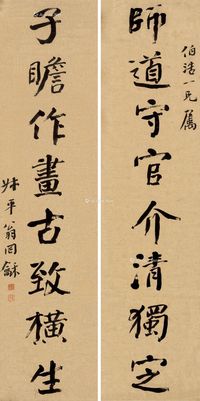 伯濤一兄屬
師道守官介清獨定
子瞻作畫古致橫生
叔平翁同龢